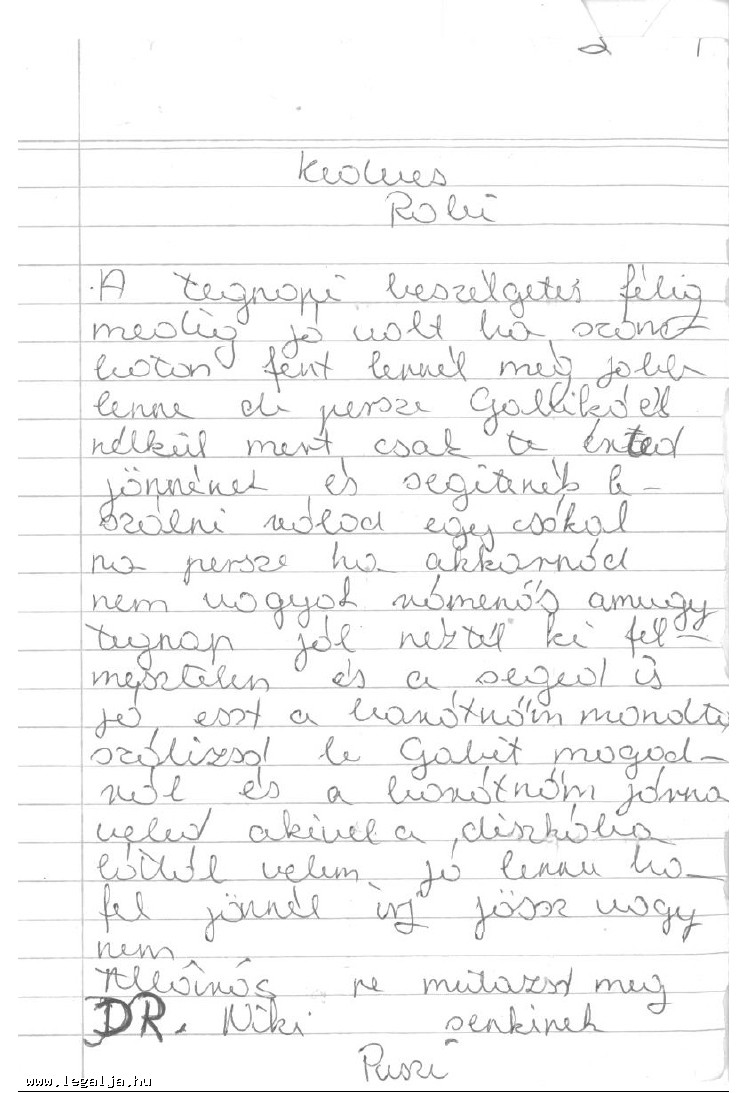 2 1
Kedves
Robi
A tegnapi beszélgetés félig
medig jó volt ha szomt
baton fent lennél még jobb
lenne de persze Gallikó és
nélkül mert csak te érted
jönnénk és segitenék le
szálni rólod egy csókal
na persze ha akkarnád
nem vagyok rámenős amugy
tegnap jól neztél ki fél-
mesztelen és a seged is
jó eszt a barátnőim mondta
szólizsd le Gabit magad-
ról és a barátnőm járna
veled akivel a diszkóba
láttál velem jó lennu ha
fel jönnél irj jössz vagy
nem
ne mutazsd meg
DR. Niki senkinek
Puszi
www.legalja.hu